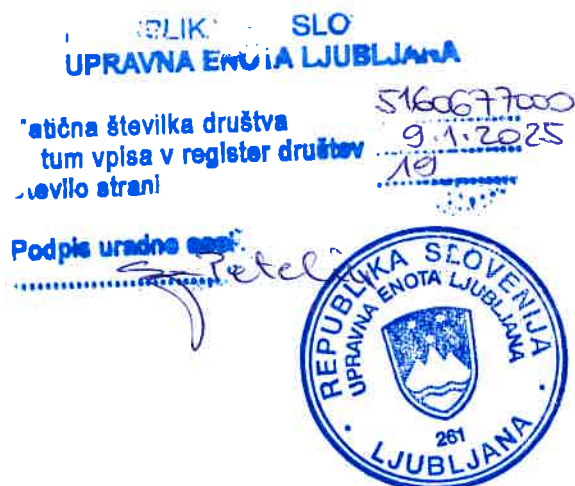 UPRAVNA ENOTA LJUBLJANA
atična številka društva 5160677000
tum vpisa v register društev 9.1.2025
število strani 19
Podpis uradne
REPUBLIKA SLOVENIJA
UPRAVNA ENOTA LJUBLJANA
261
LJUBLJANA